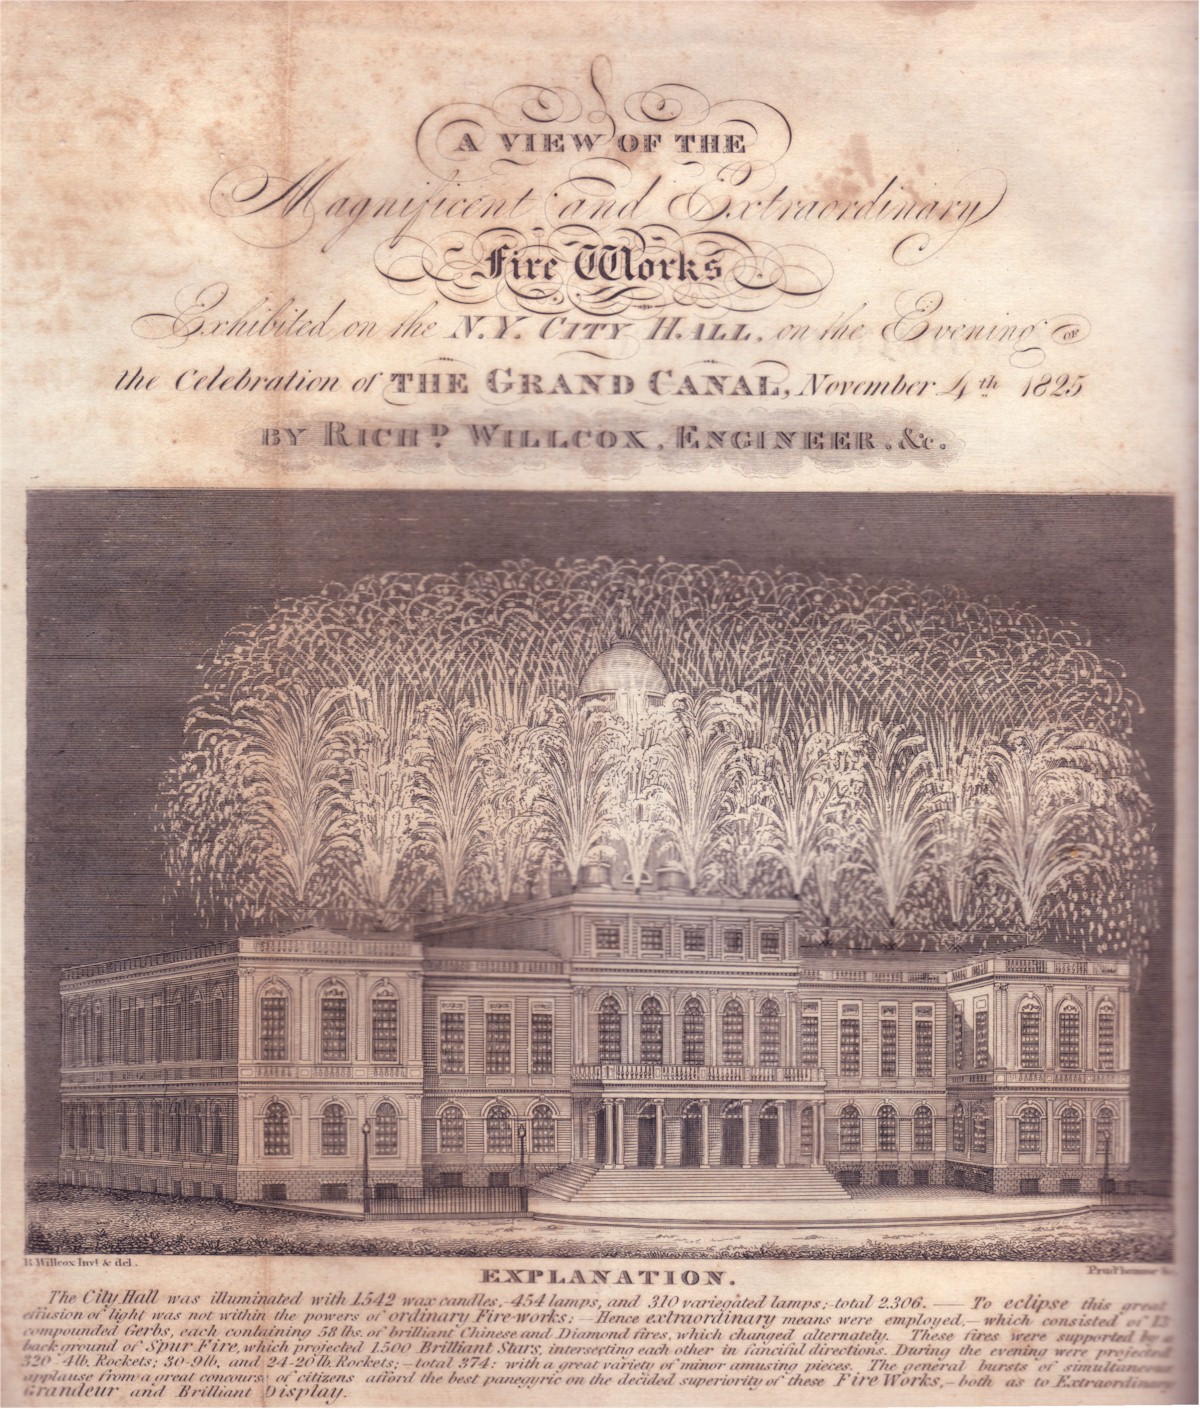 A VIEW OF THE
Magnificent and Extraordinary
Fire Works
Exhibited on the N.Y. CITY HALL, on the Evening OF
the Celebration of THE GRAND CANAL, November 4th 1825
BY RICHD. WILLCOX, ENGINEER, &c.
R Willcox Invt & del.
Prud'homme Sc
EXPLANATION.
The City Hall was illuminated with 1542 wax candles,-454 lamps, and 310 variegated lamps;-total 2.306. — To eclipse this great
effusion of light was not within the powers of ordinary Fire-works; — Hence extraordinary means were employed,— which consisted of 13
compounded Gerbs, each containing 58 lbs. of brilliant Chinese and Diamond fires, which changed alternately. These fires were supported by a
back ground of Spur Fire, which projected 1.500 Brilliant Stars, intersecting each other in fanciful directions. During the evening were projected
320 4lb. Rockets; 30-9lb. and 24-20 lb. Rockets;-total 374: with a great variety of minor amusing pieces. The general bursts of simultaneous
applause from a great concours of citizens afford the best panegyric on the decided superiority of these Fire Works,- both as to Extraordinary
Grandeur and Brilliant Display.